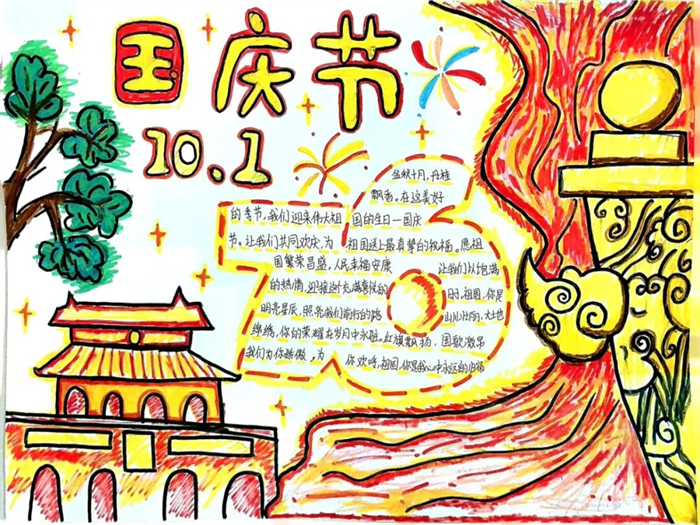 国庆节
10.1
金秋十月,丹桂
飘香。在这美好
的季节,我们迎来伟大祖国的生日—国庆
节。让我们共同欢庆,为祖国送上最真挚的祝福。愿祖
国繁荣昌盛,人民幸福安康 让我们以饱满
的热情,迎接这充满 的 时,祖国,你是
明亮星辰,照亮我们前行的路 山川壮丽,大地
绵绵,你的荣耀在岁月中永驻。红旗飘扬,国歌激昂
我们为你骄傲,为你欢呼,祖国,你是我心中永远的